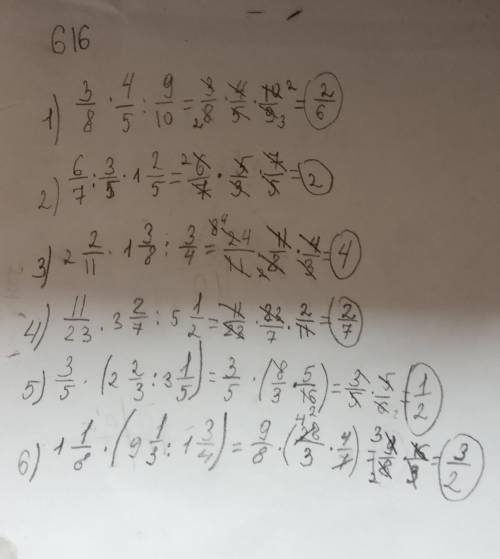 616
1) 3/8 · 4/5 : 9/10 = 3/8 · 4/5 · 10/9 = 2/6
2) 6/7 : 3/5 · 1 2/5 = 6/7 · 5/3 · 7/5 = 2
3) 2 2/11 · 1 3/8 : 3/4 = 24/11 · 11/8 · 4/3 = 4
4) 11/23 · 3 2/7 : 5 1/2 = 11/23 · 23/7 · 2/11 = 2/7
5) 3/5 · (2 2/3 : 3 1/5) = 3/5 · (8/3 · 5/16) = 3/5 · 5/6 = 1/2
6) 1 1/8 · (9 1/3 : 1 3/4) = 9/8 · (28/3 · 4/7) = 9/8 · 16/3 = 3/2